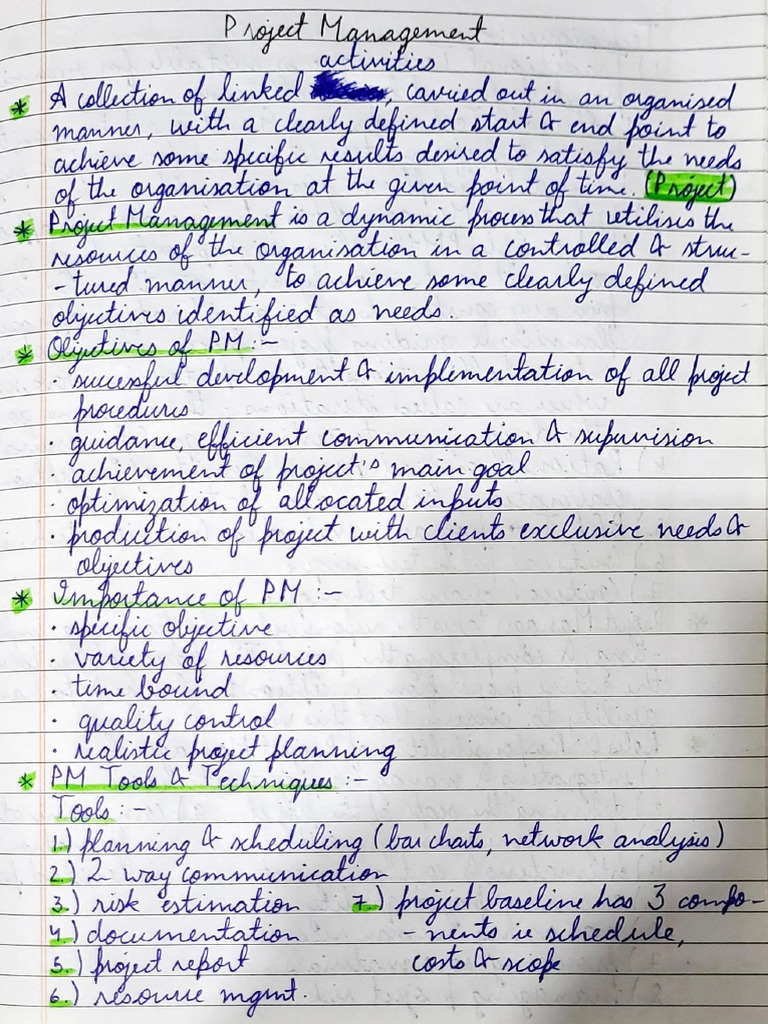 Project Management
activities
* A collection of linked , carried out in an organised
manner, with a clearly defined start & end point to
achieve some specific results desired to satisfy the needs
of the organisation at the given point of time. (Project)
* Project Management is a dynamic process that utilises the
resources of the organisation in a controlled & struc-
-tured manner, to achieve some clearly defined
objectives identified as needs.
* Objectives of PM :-
· successful development & implementation of all project
procedures
· guidance, efficient communication & supervision
· achievement of project's main goal
· optimization of allocated inputs
· production of project with clients exclusive needs &
objectives
* Importance of PM :-
· specific objective
· variety of resources
· time bound
· quality control
· realistic project planning
* PM Tools & Techniques :-
Tools :-
1.) planning & scheduling (bar charts, network analysis)
2.) 2 way communication
3.) risk estimation 7.) project baseline has 3 compo-
4.) documentation - nents ie schedule,
5.) project report costs & scope
6.) resource mgmt.